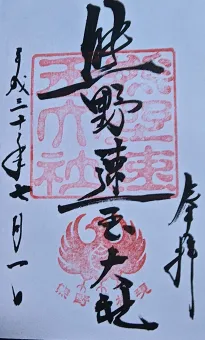 奉拝
熊野速玉大社
熊野速玉大社
平成三十年七月一日